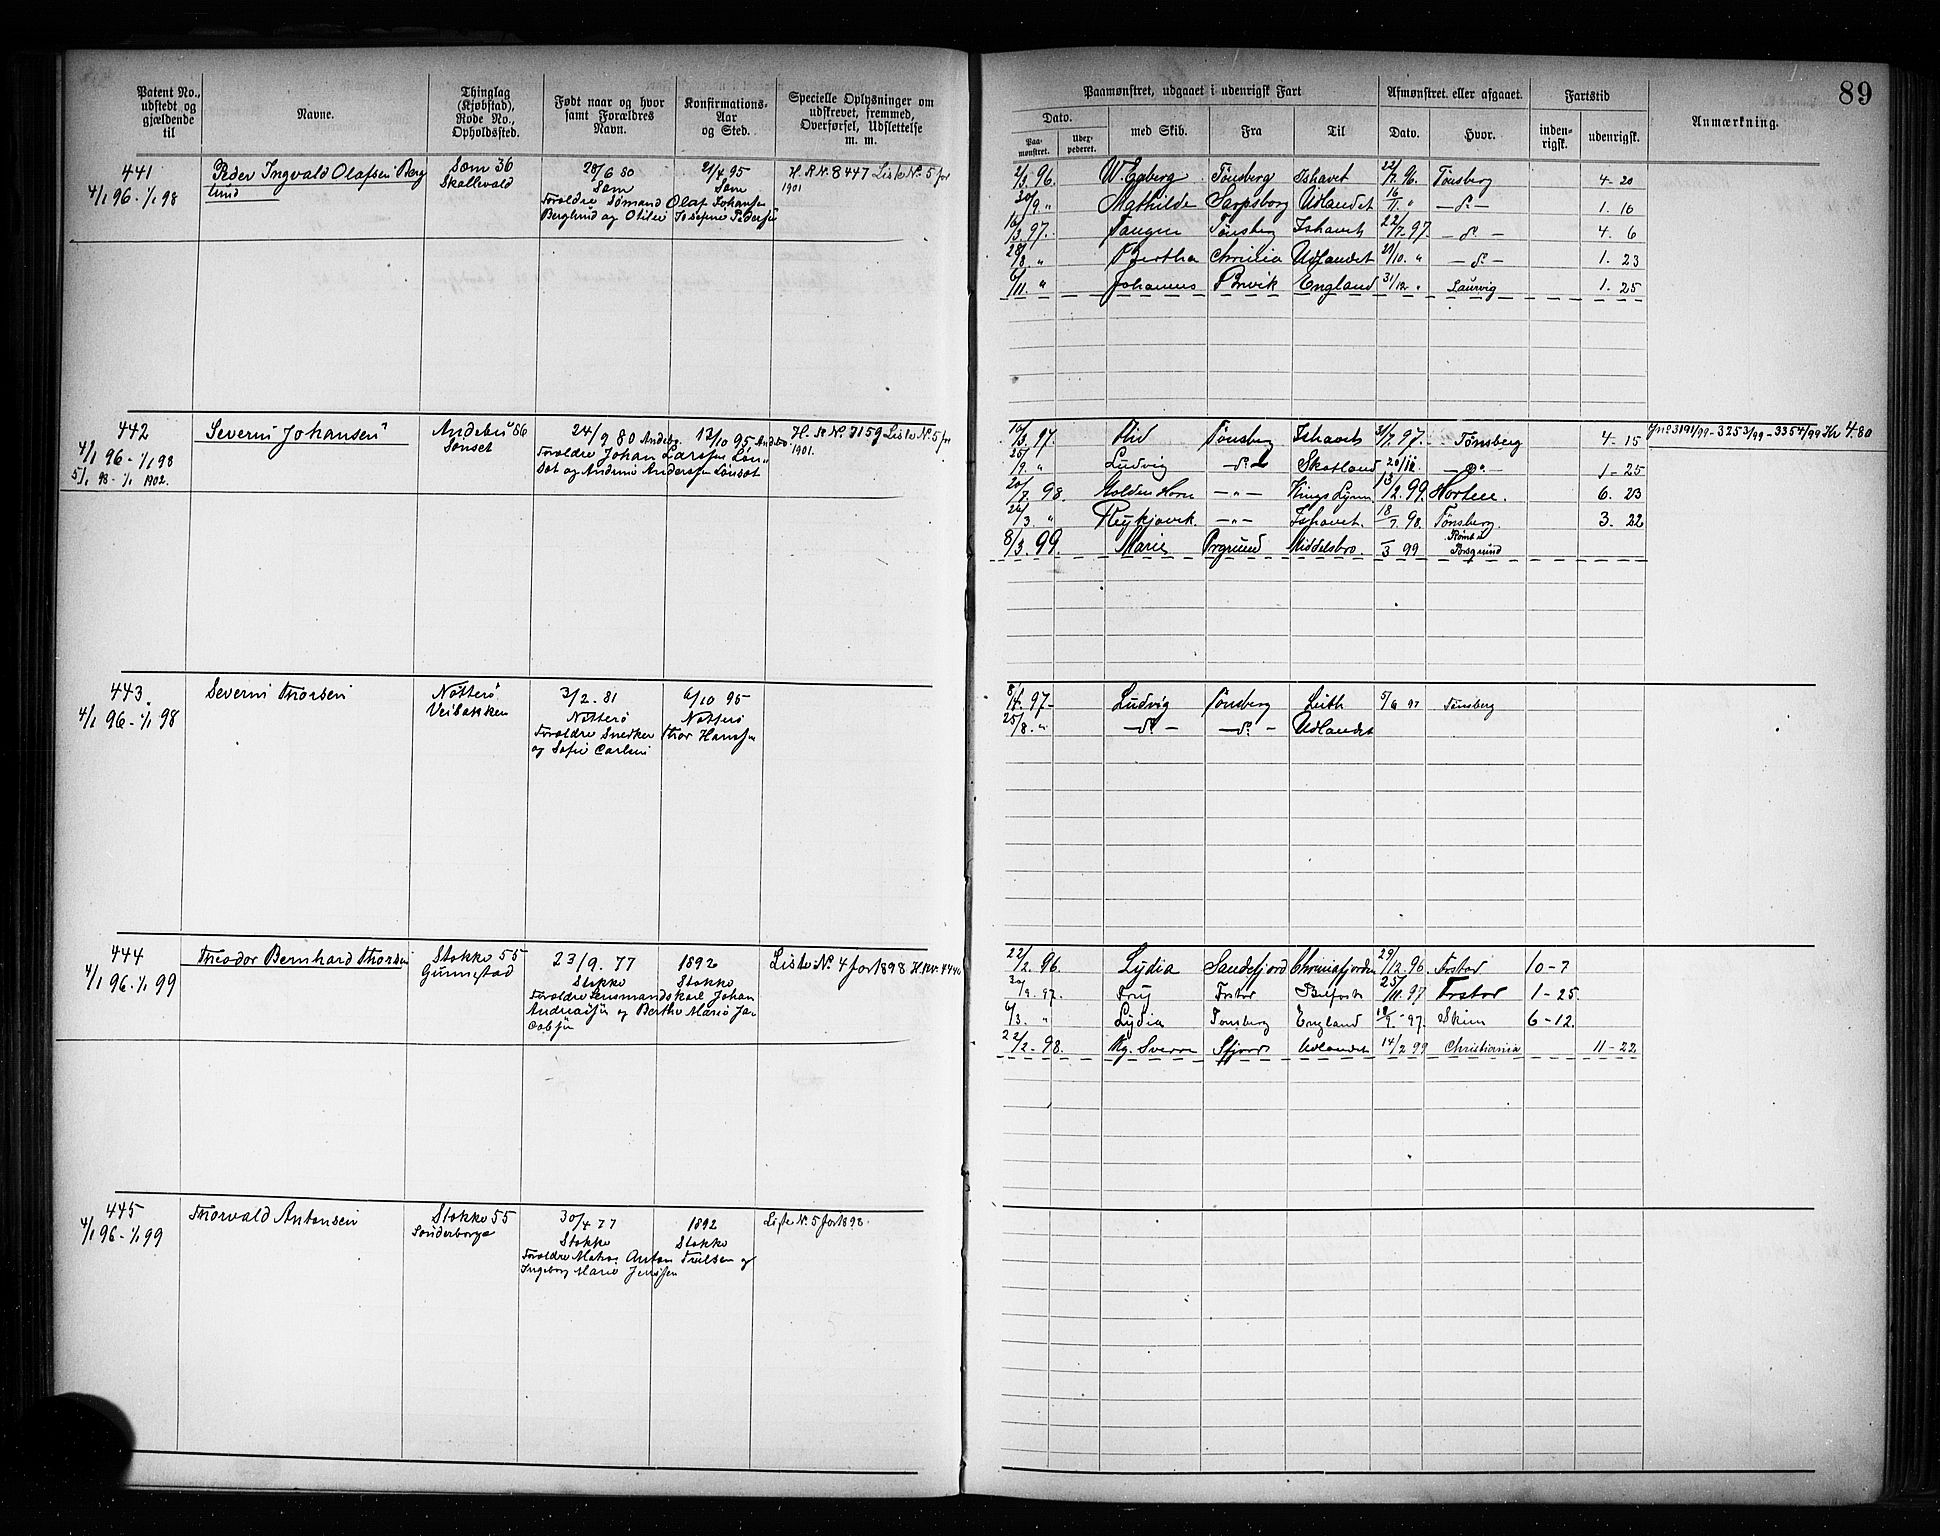 89
Patent No., udstedt og gjældende til
Navne.
Thinglag (Kjøbstad), Rode No., Opholdssted.
Født naar og hvor samt Forældres Navn.
Konfirmations-Aar og Sted.
Specielle Oplysninger om udskrevet, fremmed, Overførsel, Udslettelse m. m.
Paamønstret, udgaaet i udenrigsk Fart
Afmønstret eller afgaaet.
Fartstid
Anmærkning.
Dato.
med Skib.
Fra
Til
Dato.
Hvor.
inden-rigsk.
udenrigsk.
Paa-mønstret.
Uder-pederet.
441
4/1 96 - 1/1 98
Peder Ingvald Olafsen Berg
lund
Sæm 36
Skallevald
28/6 80
Sæm
21/4 95
Sæm
H. R. Nr. 8447 Liste Nr. 5 for
1901
Forældre Sømand Olaf Johansen
Berglund og Otilie Josefine Pedersen
2/3 96. W Egeberg Tønsberg Ishavet 22/7 96. Tønsberg 4-20
30/9 " Mathilde Sarpsborg Udlandet 16/11 " - do - 1. 16
16/3 97. Tønsberg Ishavet 22/7. 97. - do - 4. 6
28/8 " Bertha Udlandet 21/10. " - do - 1. 23
6/11. " Johannes Brevik England 31/12. " Laurvig 1. 25
442
4/1 96 - 1/1 98
5/1 98 - 1/1 1902.
Severin Johansen
Andebu 56
Sønset
24/9 80 Andebu
13/10 95 Andebu
H. R. Nr. 7159 Liste Nr. 5 for
1901.
Forældre Johan Larssen Løn-
søt og Andrine Andersen Lønsøt
16/3 97. Tønsberg Ishavet 31/7. 97. Tønsberg 4-15
Jnr 3191/99 - 3253/99 - 3354/99 Kr 4.80
25/9. " Ludvig - do - Skotland 20/11 " - do - 1-25
20/7. 98. Golden Horn - " - Kings Lynn 13/2. 99. Horten. 6. 23
26/3 " Reykjavik - " - Ishavet. 18/7 98. Tønsberg. 3. 22
8/3. 99 Marie Prgrund Middelsbro. /3 99 Rømt i
Porsgrund
443.
4/1 96 - 1/1 98
Severin Thorsen
Nøtterø
Veibakken
3/2. 81
Nøtterø
6/10 95
Nøtterø
Forældre Snedker Thor Hanssen
og Sofie Carlsen
8/4. 97- Ludvig Tønsberg Leith 5/6 97 Tønsberg
25/8. " - do - - do - Udlandet
444
4/1 96. 1/1 99
Theodor Bernhard Thorsen
Stokke 55
Gunnestad
23/9. 77
Stokke
1892
Stokke
Liste Nr. 4 for 1898 H. R. Nr. 4440
Forældre Johan
Andreassen og Berthe Marie Ja-
cobsen
22/2. 96. Lydia Sandefjord Christianiafjorden 29/12. 96. Frstad 10-7
30/9. 97. Frey Frstad Belfast 25/11. 97 Frstad 1-25
6/3. " Lydia Tønsberg England 18/9. - 97. Skien 6-12.
22/2 - 98. Kg. Sverre Sfjord Udlandet 14/2 99 Christiania 11-22
445
4/1 96 - 1/1 99
Thorvald Antonsen
Stokke 55
Sønderborge
30/4 77
Stokke
1892
Stokke
Liste Nr. 5 for 1898.
Forældre Anton Trulsen og
Ingeborg Marie Jenssen